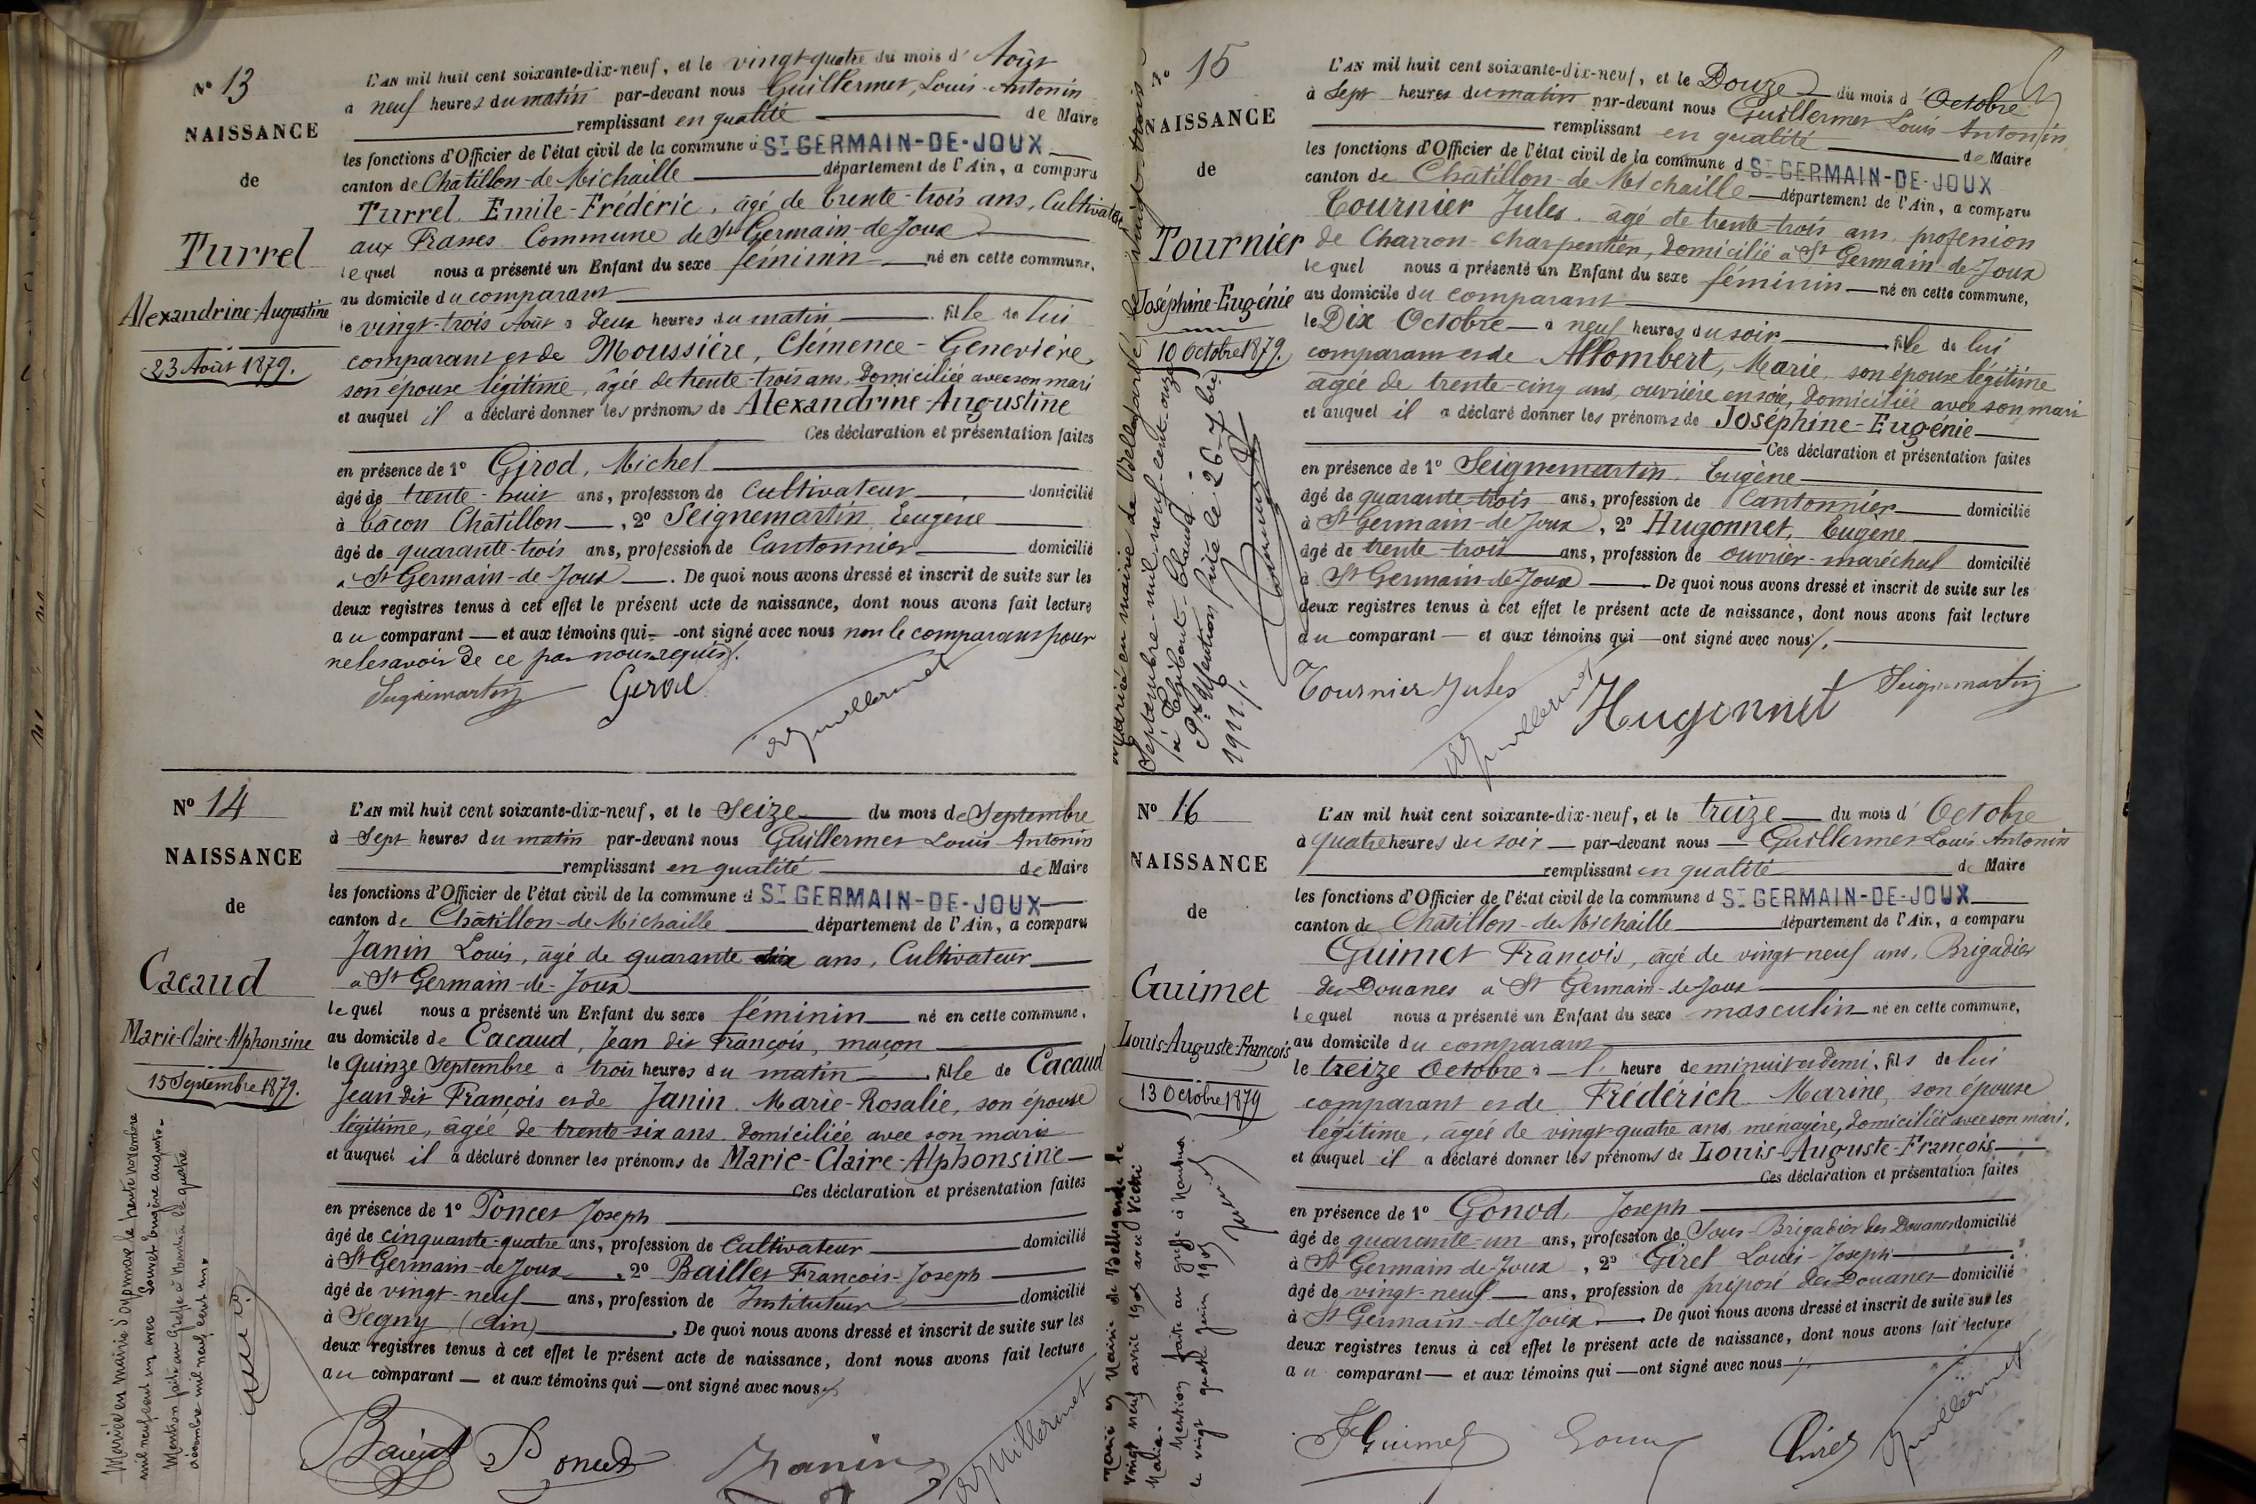 N° 13
NAISSANCE
de
Turrel
Alexandrine-Augustine
23 Août 1879.
L'AN mil huit cent soixante-dix-neuf, et le vingt-quatre du mois d' Août
à neuf heures du matin par-devant nous Guillermet, Louis-Antonin
remplissant en qualité de Maire
les fonctions d'Officier de l'état civil de la commune d ST GERMAIN-DE-JOUX
canton de Châtillon-de-Michaille département de l'Ain, a comparu
Turrel, Emile-Frédéric, âgé de trente-trois ans, Cultivateur
aux Frasses Commune de St Germain-de-Joux
lequel nous a présenté un Enfant du sexe féminin né en cette commune,
au domicile du comparant
le vingt-trois Août à deux heures du matin fille de lui
comparant et de Moussière, Clémence-Geneviève,
son épouse légitime, âgée de trente-trois ans, Domiciliée avec son mari
et auquel il a déclaré donner les prénoms de Alexandrine-Augustine
Ces déclaration et présentation faites
en présence de 1° Girod, Michel
âgé de trente-huit ans, profession de Cultivateur domicilié
à Tâcon Châtillon, 2° Seignemartin, Eugène
âgé de quarante-trois ans, profession de Cantonnier domicilié
à St Germain-de-Joux. De quoi nous avons dressé et inscrit de suite sur les
deux registres tenus à cet effet le présent acte de naissance, dont nous avons fait lecture
au comparant et aux témoins qui ont signé avec nous non le comparant pour
ne le savoir de ce par nous requis.
Seignemartin Girod
Guillermet
N° 14
NAISSANCE
de
Cacaud
Marie-Claire-Alphonsine
15 Septembre 1879.
Mariée en mairie d'Oyonnax le trente novembre
mil neuf cent un avec Louvet Eugène auguste.
Mention faite au Greffe à Nantua le quatre
décembre mil neuf cent un.
L'AN mil huit cent soixante-dix-neuf, et le Seize du mois de Septembre
à Sept heures du matin par-devant nous Guillermet Louis Antonin
remplissant en qualité de Maire
les fonctions d'Officier de l'état civil de la commune d ST GERMAIN-DE-JOUX
canton de Châtillon-de-Michaille département de l'Ain, a comparu
Janin Louis, âgé de quarante ans, Cultivateur
à St Germain-de-Joux
lequel nous a présenté un Enfant du sexe féminin né en cette commune,
au domicile de Cacaud, Jean dit François, maçon
le quinze Septembre à trois heures du matin fille de Cacaud
Jean dit François et de Janin Marie-Rosalie, son épouse
légitime, âgée de trente-six ans domiciliée avec son mari
et auquel il a déclaré donner les prénoms de Marie-Claire-Alphonsine
Ces déclaration et présentation faites
en présence de 1° Poncet Joseph
âgé de cinquante-quatre ans, profession de Cultivateur domicilié
à St Germain-de-Joux, 2° Baillet François-Joseph
âgé de vingt-neuf ans, profession de Instituteur domicilié
à Segny (Ain). De quoi nous avons dressé et inscrit de suite sur les
deux registres tenus à cet effet le présent acte de naissance, dont nous avons fait lecture
au comparant et aux témoins qui ont signé avec nous
Poncet Janin
Guillermet
N° 15
NAISSANCE
de
Tournier
Joséphine-Eugénie
10 Octobre 1879.
Mariée en mairie de Bellegarde, le vingt-trois
Septembre mil neuf cent onze
à Thibaut Claude.
Pr Mention faite le 26-7bre
1911.
L'AN mil huit cent soixante-dix-neuf, et le Douze du mois d' Octobre
à Sept heures du matin par-devant nous Guillermet Louis Antonin
remplissant en qualité de Maire
les fonctions d'Officier de l'état civil de la commune d ST GERMAIN-DE-JOUX
canton de Châtillon-de-Michaille département de l'Ain, a comparu
Tournier Jules, âgé de trente-trois ans profession
de Charron-charpentier, Domicilié à St Germain-de-Joux
lequel nous a présenté un Enfant du sexe féminin né en cette commune,
au domicile du comparant
le Dix Octobre à neuf heures du soir fille de lui
comparant et de Allombert, Marie, son épouse légitime
âgée de trente-cinq ans, ouvrière en soie, Domiciliée avec son mari
et auquel il a déclaré donner les prénoms de Joséphine-Eugénie
Ces déclaration et présentation faites
en présence de 1° Seignemartin, Eugène
âgé de quarante-trois ans, profession de Cantonnier domicilié
à St Germain-de-Joux, 2° Hugonnet, Eugène
âgé de trente-trois ans, profession de ouvrier-maréchal domicilié
à St Germain-de-Joux De quoi nous avons dressé et inscrit de suite sur les
deux registres tenus à cet effet le présent acte de naissance, dont nous avons fait lecture
au comparant et aux témoins qui ont signé avec nous.
Tournier Jules Hugonnet Seignemartin
Guillermet
N° 16
NAISSANCE
de
Guimet
Louis-Auguste-François
13 Octobre 1879
Marié en Mairie de Bellegarde le
vingt neuf avril 1905 avec
Mention faite au greffe à Nantua
le vingt quatre juin 1905
L'AN mil huit cent soixante-dix-neuf, et le treize du mois d' Octobre
à quatre heures du soir par-devant nous Guillermet Louis Antonin
remplissant en qualité de Maire
les fonctions d'Officier de l'état civil de la commune d ST GERMAIN-DE-JOUX
canton de Châtillon-de-Michaille département de l'Ain, a comparu
Guimet François, âgé de vingt-neuf ans, Brigadier
des Douanes à St Germain-de-Joux
lequel nous a présenté un Enfant du sexe masculin né en cette commune,
au domicile du comparant
le treize Octobre à l' heure de minuit et demi, fils de lui
comparant et de Frédérich Marine, son épouse
légitime, âgée de vingt-quatre ans, ménagère, domiciliée avec son mari,
et auquel il a déclaré donner les prénoms de Louis-Auguste-François
Ces déclaration et présentation faites
en présence de 1° Gonod, Joseph
âgé de quarante-un ans, profession de Sous-Brigadier des Douanes domicilié
à St Germain-de-Joux, 2° Girel Louis-Joseph
âgé de vingt-neuf ans, profession de préposé des Douanes domicilié
à St Germain-de-Joux. De quoi nous avons dressé et inscrit de suite sur les
deux registres tenus à cet effet le présent acte de naissance, dont nous avons fait lecture
au comparant et aux témoins qui ont signé avec nous
F Guimet Girel
Guillermet